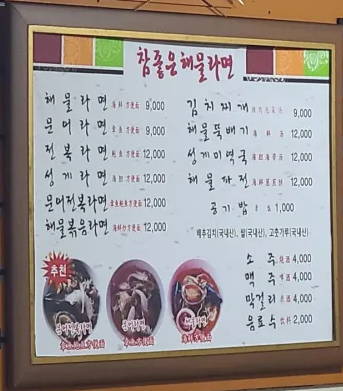 참좋은해물라면
해물라면 海鮮方便面 9,000
문어라면 章魚方便面 9,000
전복라면 鮑魚方便面 12,000
성게라면 海胆方便面 12,000
문어전복라면 章魚鮑魚方便面 12,000
해물볶음라면 海鲜炒方便面 12,000
김치찌개 9,000
해물뚝배기 海鮮汤 12,000
성게미역국 海胆海帶汤 12,000
해물파전 海鮮葱煎饼 12,000
공기밥 1,000
배추김치(국내산), 쌀(국내산), 고춧가루(국내산)
소주 烧酒 4,000
맥주 啤酒 4,000
막걸리 米酒 4,000
음료수 饮料 2,000
추천
문어라면